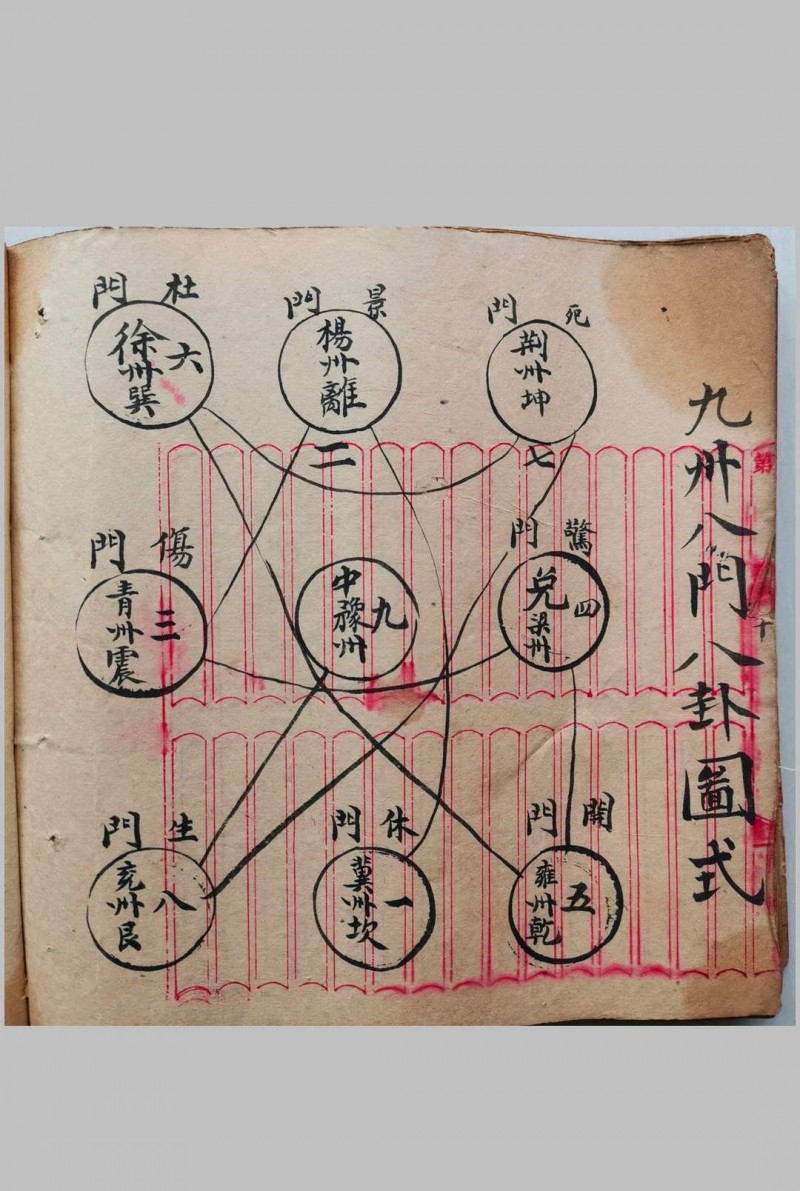 九州八門八卦圖式
死門
荆州坤
七
景門
楊州離
二
杜門
六
徐州巽
驚門
四
兌
梁州
九
中豫州
傷門
三
青州震
開門
五
雍州乾
休門
一
冀州坎
生門
八
兗州艮
第
十